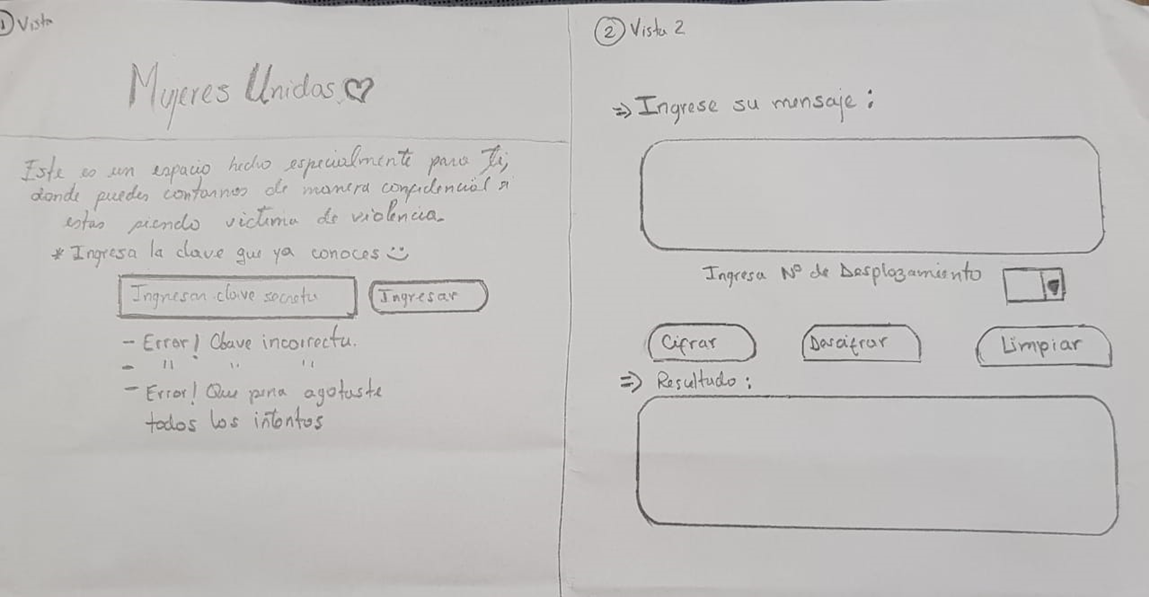 1 Vista
Mujeres Unidas ♡
Este es un espacio hecho especialmente para ti,
donde puedes contarnos de manera confidencial si
estas siendo victima de violencia.
* Ingresa la clave que ya conoces
Ingresar clave secreta
Ingresar
- Error! Clave incorrecta.
- " " "
- Error! Que pena agotaste
todos los intentos
2 Vista 2
⇒ Ingrese su mensaje :
Ingresa Nº de Desplazamiento
Cifrar
Descifrar
Limpiar
⇒ Resultado :